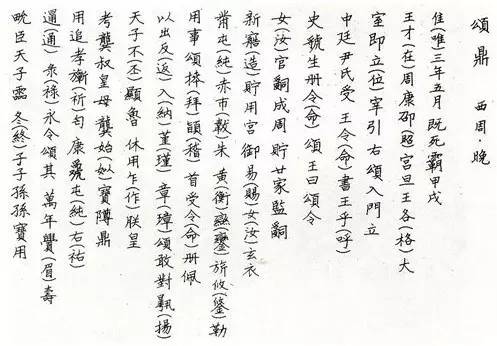 頌鼎　西周·晚
隹(唯)三年五月既死霸甲戌
王才(在)周康卲(照)宮旦王各(格)大
室即立(位)宰引右頌入門立
中廷尹氏受王令(命)書王乎(呼)
史虢生册令(命)頌王曰頌令
女(汝)官嗣成周貯廿家監嗣
新寤(造)貯用宮御易(賜)女(汝)玄衣
黹屯(純)赤巿朱黃(衡)䜌(鑾)旂攸(鋚)勒
用事頌𢱭(拜)䭫(稽)首受令(命)册佩
以出反(返)入(納)堇(瑾)章(璋)頌敢對揚(揚)
天子不(丕)顯魯休用乍(作)朕皇
考龔叔皇母龔始(姒)寶䵼鼎
用追孝祈匄康屯(純)右(祐)
通彔(祿)永令頌其萬年眉(眉)壽
畯臣天子霝冬(終)子子孫孫寶用